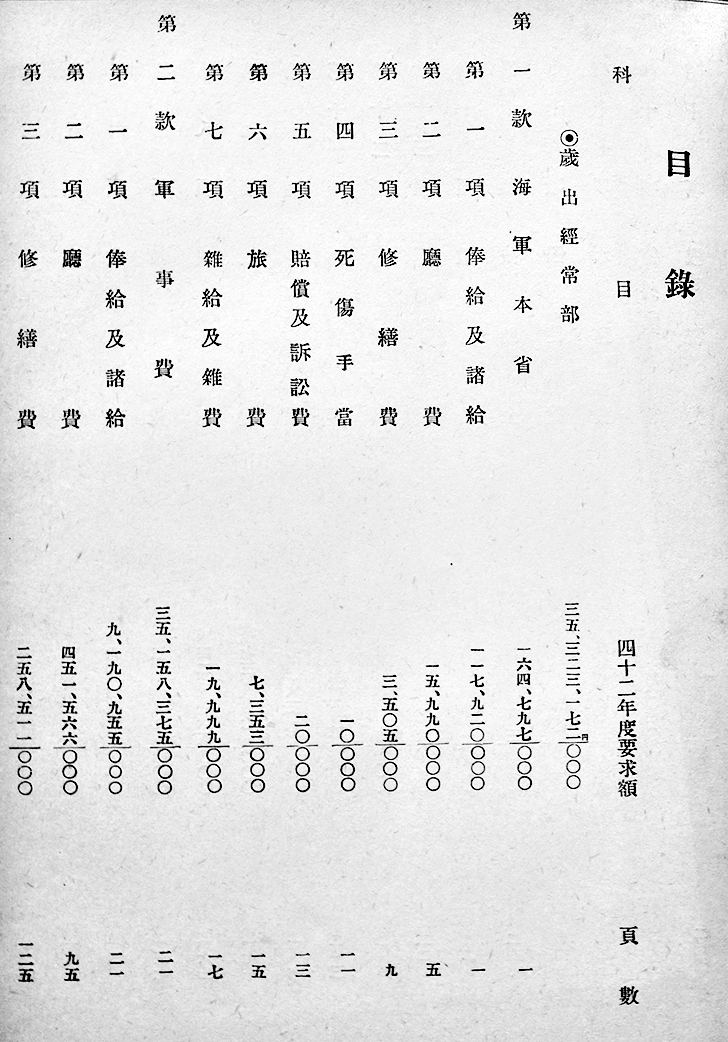 目錄
科目 四十二年度要求額 頁數
◉歲出經常部 三五、三二三、一七二円〇〇〇
第一款 海軍本省 一六四、七九七〇〇〇 一
第一項 俸給及諸給 一一七、九二〇〇〇〇 一
第二項 廳費 一五、九九〇〇〇〇 五
第三項 修繕費 三、五〇五〇〇〇 九
第四項 死傷手當 一〇〇〇〇 一一
第五項 賠償及訴訟費 二〇〇〇〇 一三
第六項 旅費 七、三五三〇〇〇 一五
第七項 雜給及雜費 一九、九九九〇〇〇 一七
第二款 軍事費 三五、一五八、三七五〇〇〇 二一
第一項 俸給及諸給 九、一九〇、九五五〇〇〇 二一
第二項 廳費 四五一、五六六〇〇〇 九五
第三項 修繕費 二五八、五一一〇〇〇 一二五